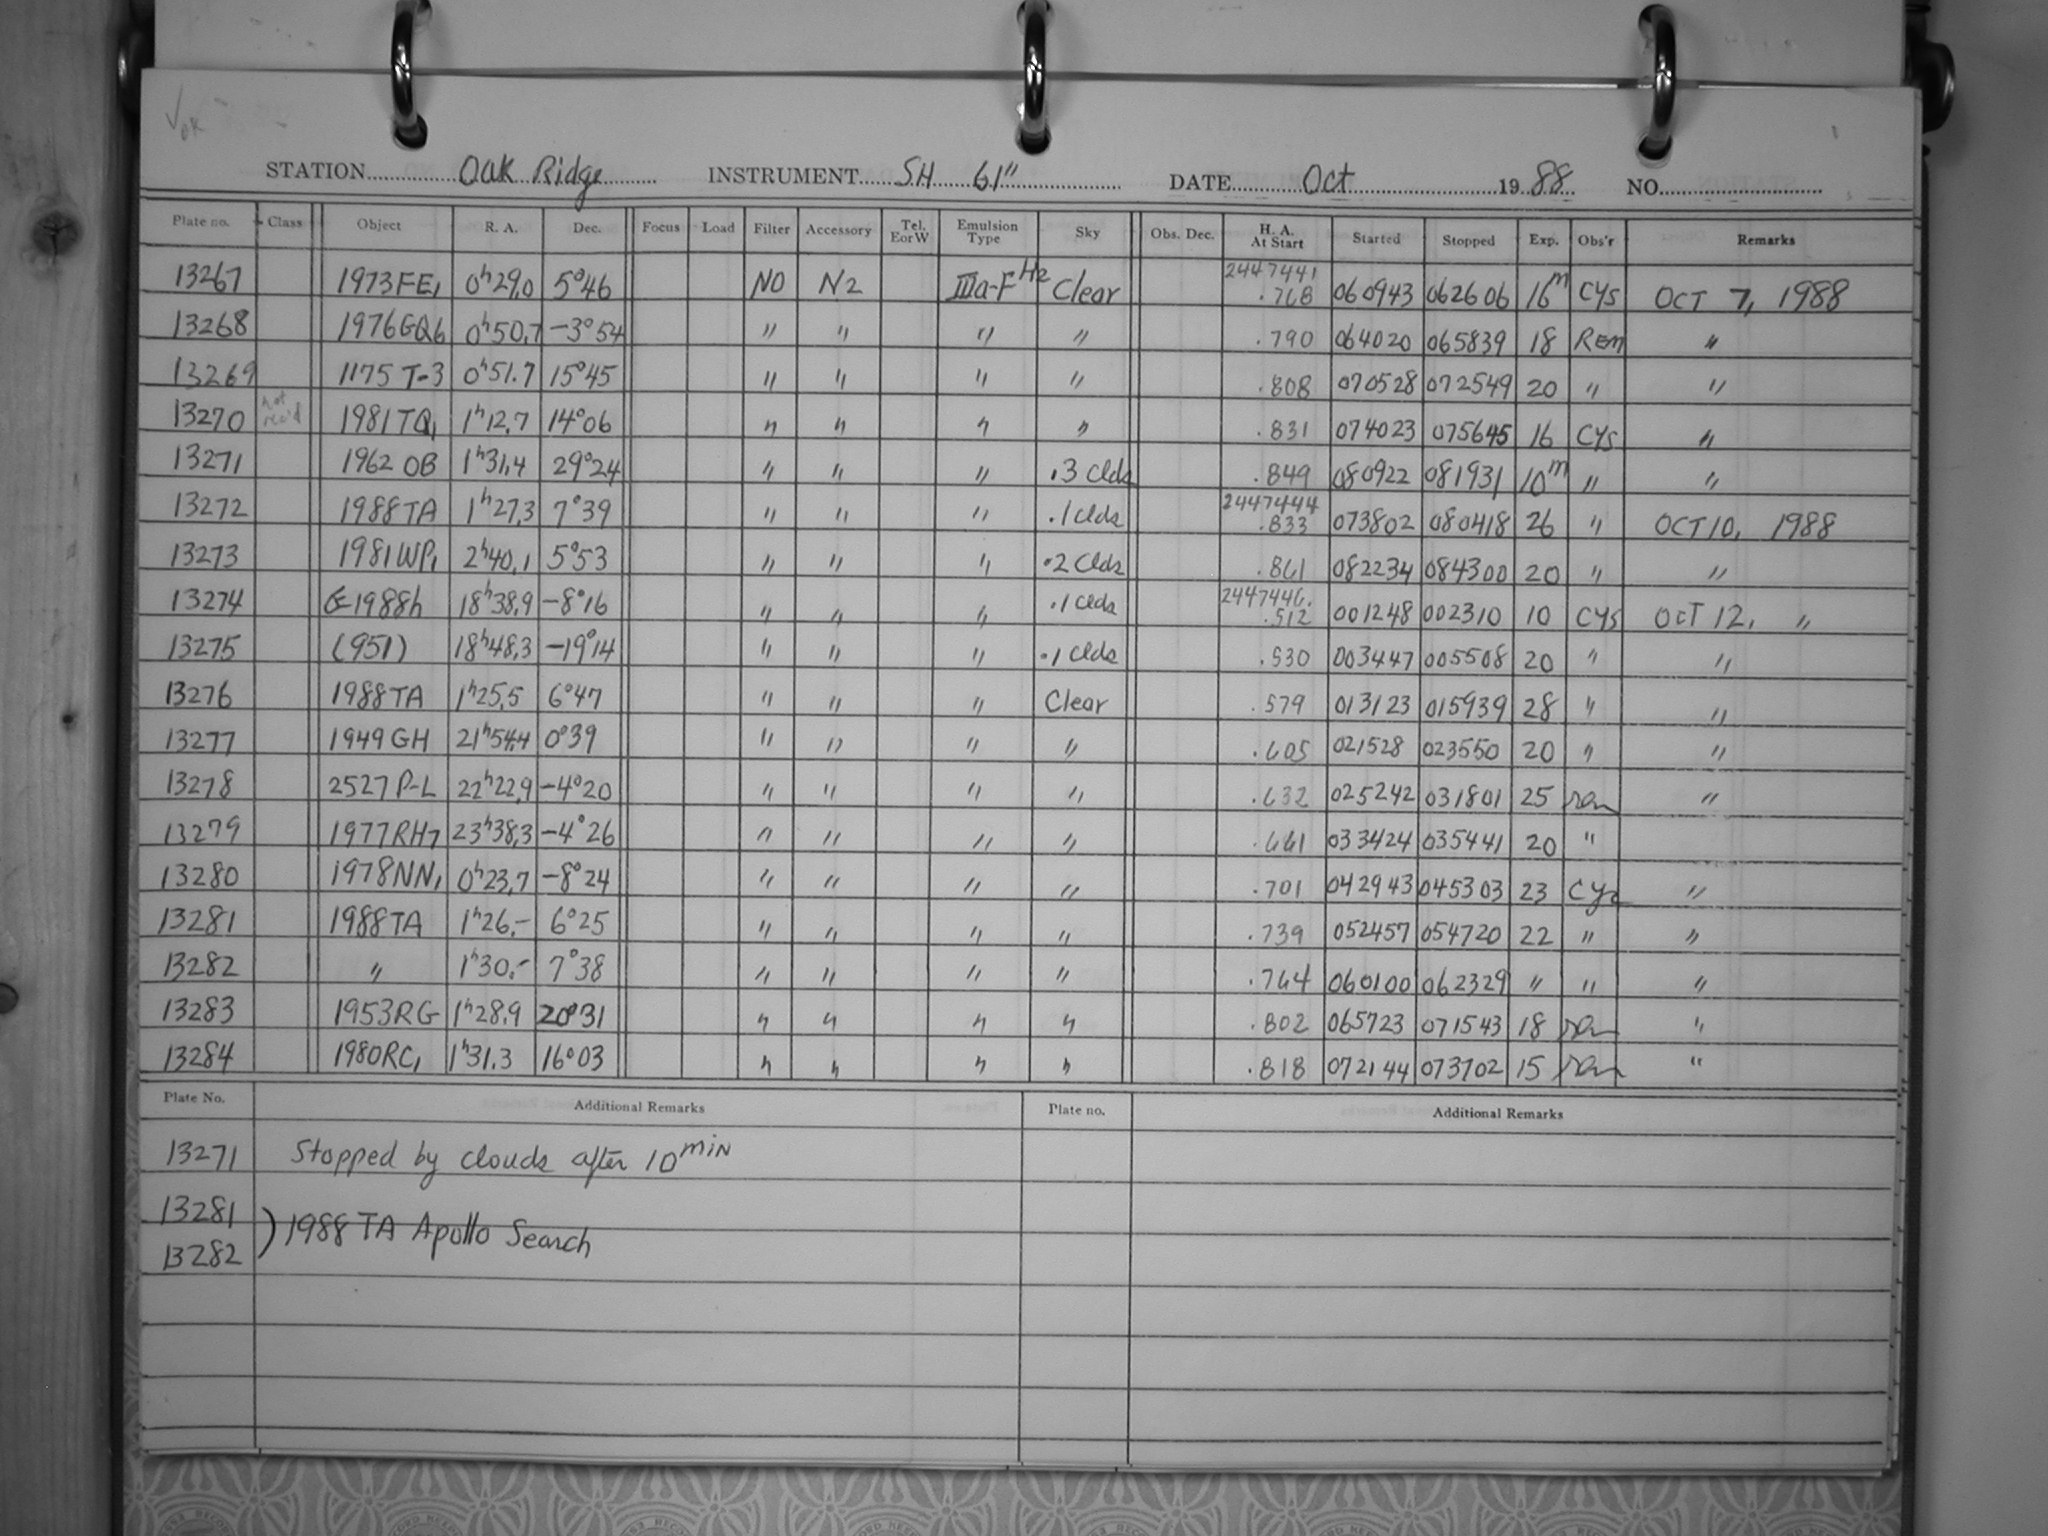 ✓ OK
STATION Oak Ridge INSTRUMENT SH 61" DATE Oct 1988 NO.
Plate no. Class Object R. A. Dec. Focus Load Filter Accessory Tel. E or W Emulsion Type Sky Obs. Dec. H. A. At Start Started Stopped Exp. Obs'r Remarks
13267 1973FE₁ 0ʰ29.0 5°46 NO N2 IIIa-F H2 Clear 2447441 .768 060943 062606 16ᵐ CYS OCT 7, 1988
13268 1976GQ6 0ʰ50.7 -3°54 " " " " .790 064020 065839 18 Rem "
13269 1175 T-3 0ʰ51.7 15°45 " " " " .808 070528 072549 20 " "
13270 not rec'd 1981TQ₁ 1ʰ12.7 14°06 " " " " .831 074023 075645 16 CYS "
13271 1962 OB 1ʰ31.4 29°24 " " " .3 Clds .849 080922 081931 10ᵐ " "
13272 1988TA 1ʰ27.3 7°39 " " " .1 Clds 2447444 .833 073802 080418 26 " OCT 10, 1988
13273 1981WP₁ 2ʰ40.1 5°53 " " " .2 Clds .861 082234 084300 20 " "
13274 1988h 18ʰ38.9 -8°16 " " " .1 Clds 2447446. .512 001248 002310 10 CYS OCT 12, "
13275 (951) 18ʰ48.3 -19°14 " " " .1 Clds .530 003447 005508 20 " "
13276 1988TA 1ʰ25.5 6°47 " " " Clear .579 013123 015939 28 " "
13277 1949GH 21ʰ54.4 0°39 " " " " .605 021528 023550 20 " "
13278 2527 P-L 22ʰ22.9 -4°20 " " " " .632 025242 031801 25 rem "
13279 1977RH7 23ʰ38.3 -4°26 " " " " .661 033424 035441 20 "
13280 1978NN₁ 0ʰ23.7 -8°24 " " " " .701 042943 045303 23 Cys "
13281 1988TA 1ʰ26.- 6°25 " " " " .739 052457 054720 22 " "
13282 " 1ʰ30.- 7°38 " " " " .764 060100 062329 " " "
13283 1953RG 1ʰ28.9 20°31 " " " " .802 065723 071543 18 rem "
13284 1980RC₁ 1ʰ31.3 16°03 " " " " .818 072144 073702 15 rem "
Plate No. Additional Remarks Plate no. Additional Remarks
13271 Stopped by clouds after 10ᵐⁱⁿ
13281
) 1988 TA Apollo Search
13282